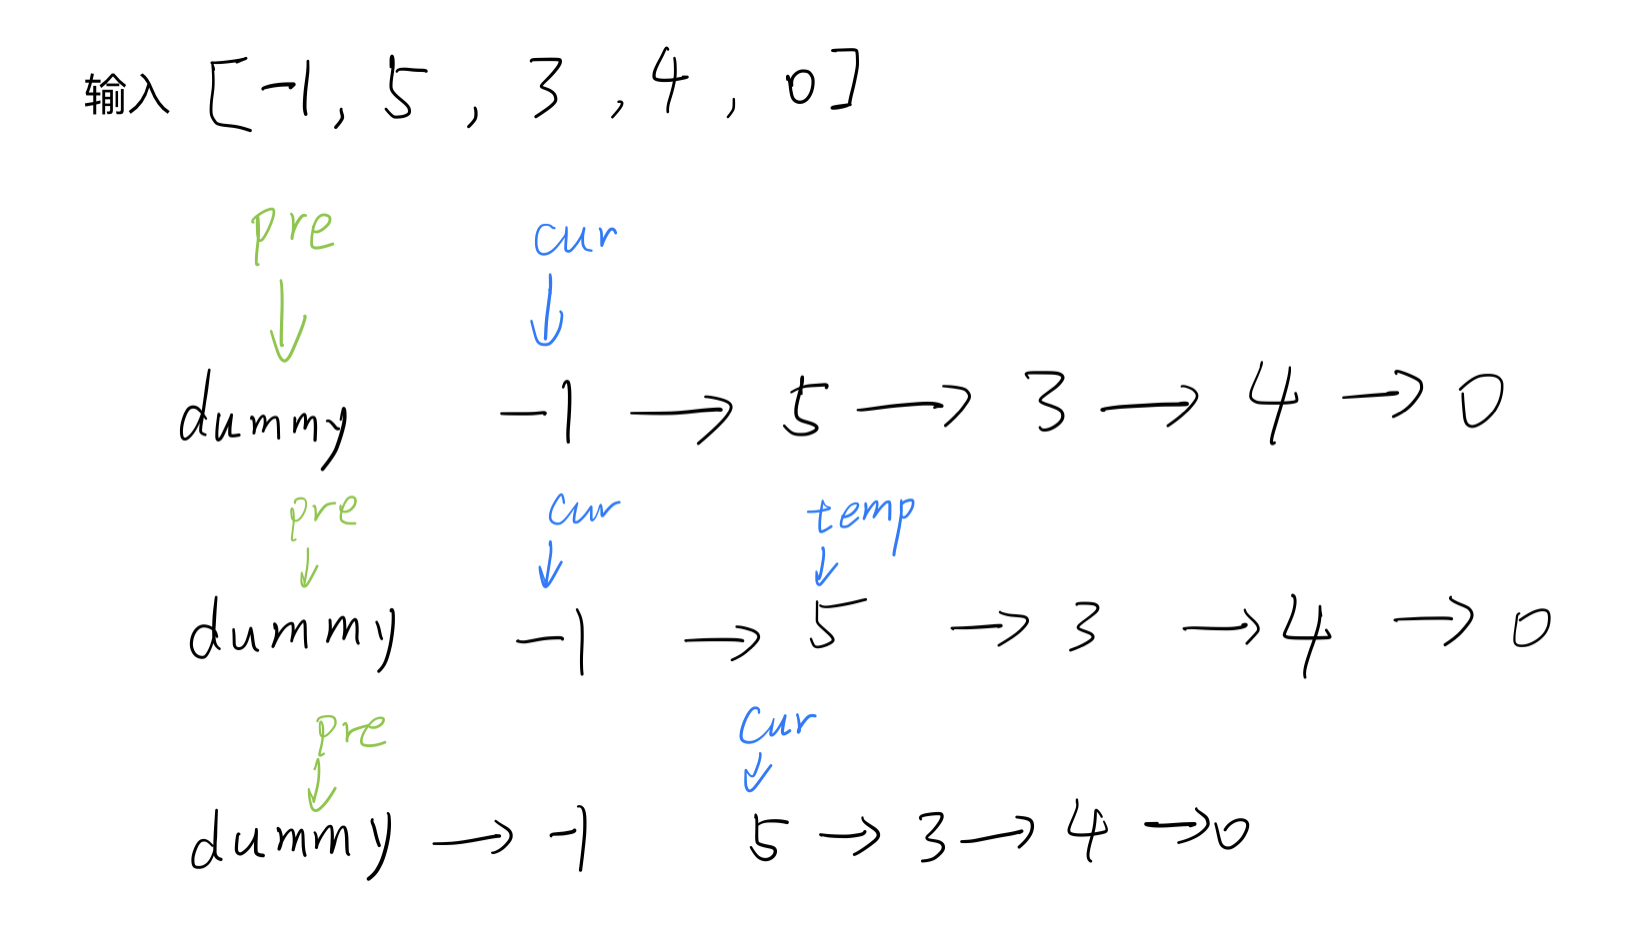 输入 [-1, 5, 3, 4, 0]
pre cur
dummy -1 → 5 → 3 → 4 → 0
pre cur temp
dummy -1 → 5 → 3 → 4 → 0
pre cur
dummy → -1 5 → 3 → 4 → 0